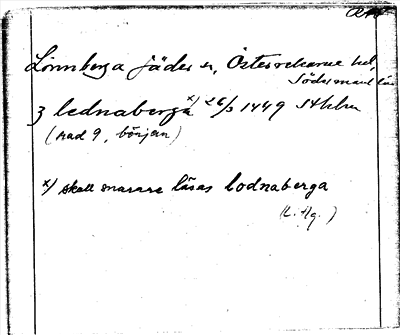 Lönnberga Jäders sn, Österrekarne hd,
Södermanl. län
ȝ lednaberga x) 26/3 1449 Sthlm
(rad 9, början)
x) skall snarare läsas lodnaberga
(L. Hg.)